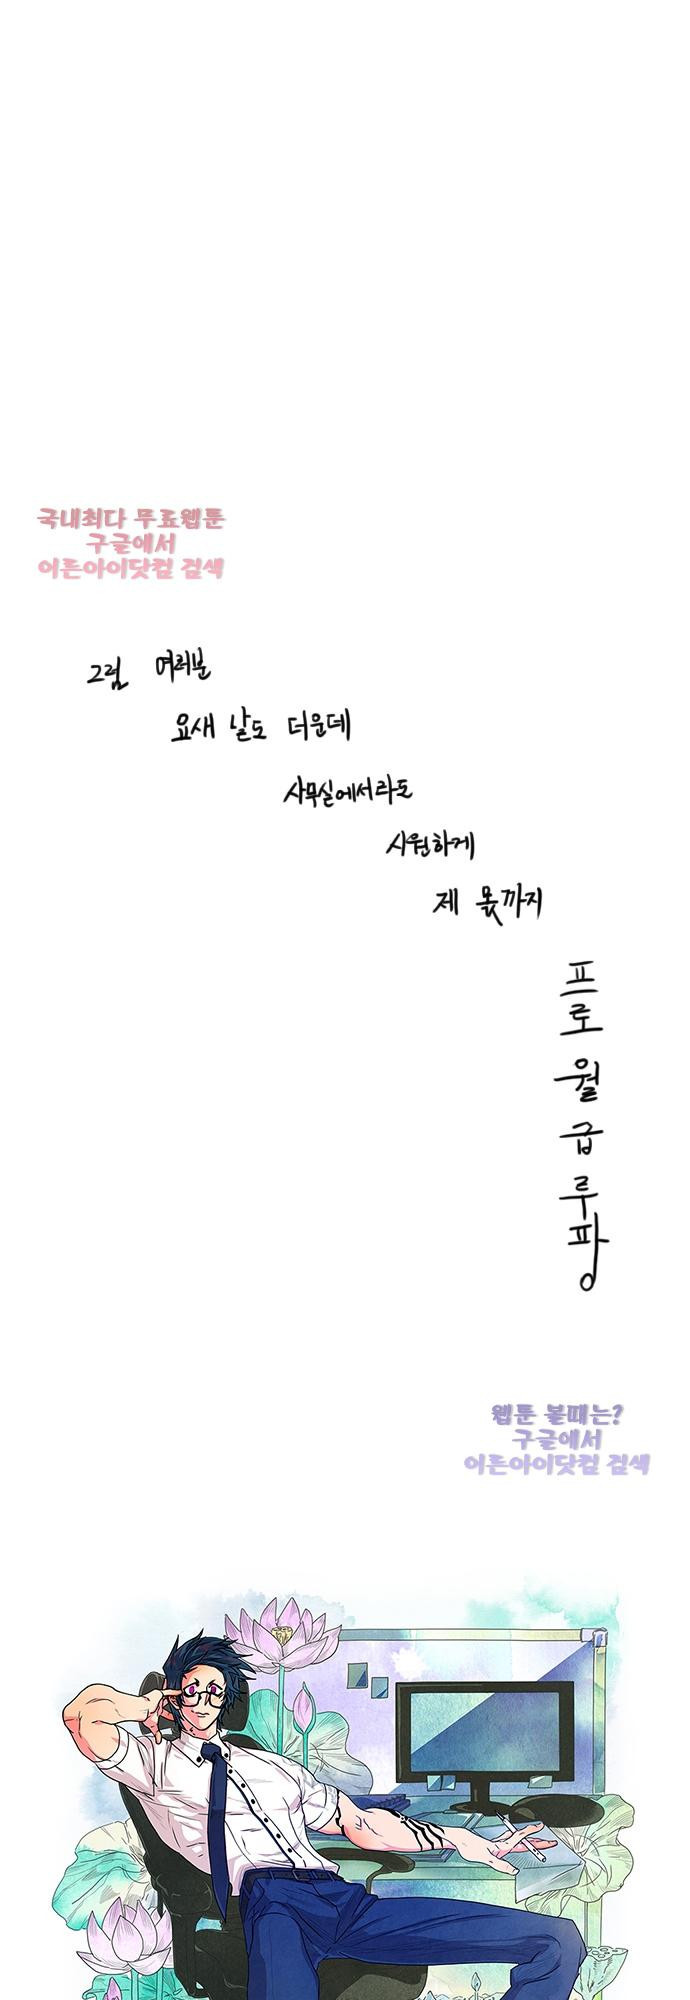 국내최다 무료웹툰
구글에서
이른아이닷컴 검색
그럼 여러분
요새 날도 더운데
사무실에서라도
시원하게
제 몫까지
프로월급루팡
웹툰 볼때는?
구글에서
이른아이닷컴 검색